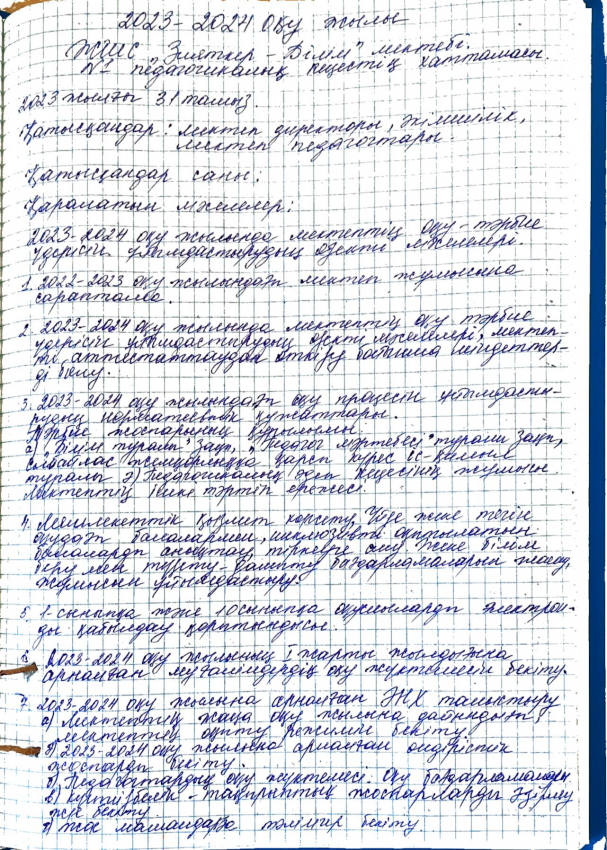 2023-2024 оқу жылы
ЖШС "Зияткер-Білім" мектебі.
№ педагогикалық кеңестің хаттамасы.
2023 жылғы 31 тамыз.
Қатысқандар: мектеп директоры, әкімшілік,
мектеп педагогтары.
Қатысқандар саны:
Қаралатын мәселелер:
2023-2024 оқу жылында мектептің оқу-тәрбие
үдерісін ұйымдастырудың өзекті мәселелері.
1. 2022-2023 оқу жылындағы мектеп жұмысына
сараптама.
2. 2023-2024 оқу жылында мектептің оқу тәрбие
үдерісін ұйымдастырудың өзекті мәселелері, мектеп-
ті аттестаттаудан өткізу бойынша міндеттер-
ді бөлу.
3. 2023-2024 оқу жылындағы оқу процесін ұйымдасты-
рудың нормативтік құжаттары.
Тәрбие жоспарының құрылымы.
а) "Білім туралы" Заңы, "Педагог мәртебесі" туралы Заңы,
сыбайлас жемқорлыққа қарсы күрес іс-қимыл
туралы ә) Педагогикалық әдеп кеңесінің жұмысы
Мектептің ішкі тәртіп ережесі.
4. Мемлекеттік қызмет көрсету. Үйде және тегін
оқудағы балалармен, инклюзивті оқытылатын
балаларды анықтау, тіркеуге алу және білім
беру мен түзету-дамыту бағдарламаларын жасау,
жұмысын ұйымдастыру.
5. 1-сыныпқа және 10 сыныпқа оқушыларды электрон-
ды қабылдау қорытындысы.
6. 2023-2024 оқу жылының I жарты жылдығына
арналған мұғалімдердің оқу жүктемесін бекіту.
7. 2023-2024 оқу жылына арналған ӘНХ таныстыру
а) Мектептің жаңа оқу жылына дайындығы
мектептің оқыту режимін бекіту
ә) 2023-2024 оқу жылына арналған өндірістік
жоспарды бекіту.
б) Педагогтардың оқу жүктемесі. Оқу бағдарламалары
в) Күнтізбелік-тақырыптық жоспарларды әзірлеу
және бекіту
г) Жас мамандарға тәлімгер бекіту.